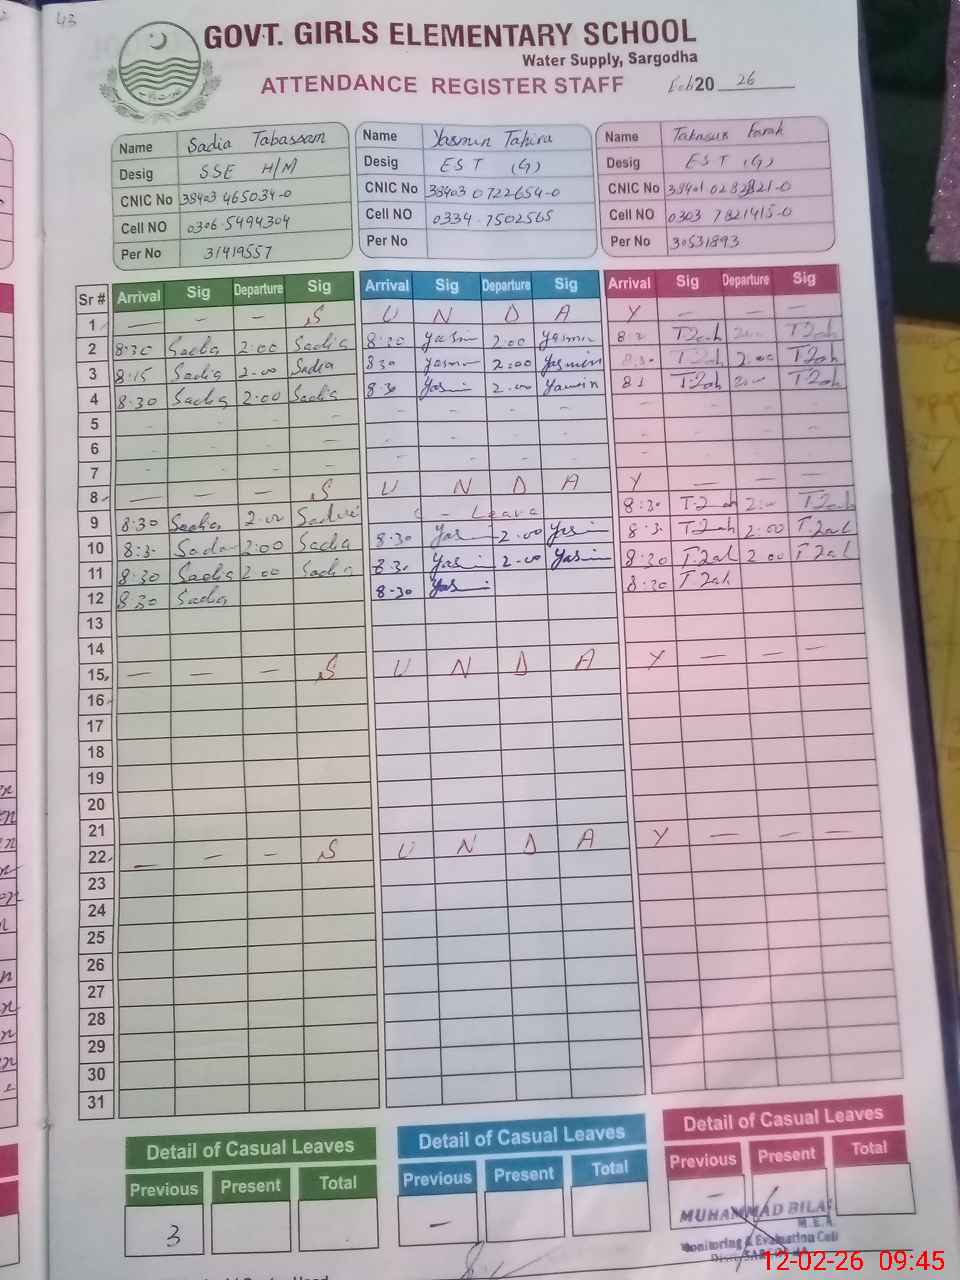 43
GOVT. GIRLS ELEMENTARY SCHOOL
Water Supply, Sargodha
ATTENDANCE REGISTER STAFF Feb 2026
Name Sadia Tabassam
Desig SSE H/M
CNIC No 38403 465034-0
Cell NO 0306-5494304
Per No 31419557
Name Yasmin Tahira
Desig EST (G)
CNIC No 38403 0722654-0
Cell NO 0334-7502565
Per No
Name Farah
Desig EST (G)
CNIC No 38401 0282821-0
Cell NO 0303 7821415-0
Per No 30531893
Sr # Arrival Sig Departure Sig Arrival Sig Departure Sig Arrival Sig Departure Sig
1 — - - S U N D A Y - - -
2 8:30 Sadia 2:00 Sadia 8:30 Yasmin 2:00 Yasmin T2ah T2ah
3 8:15 Sadia 2:00 Sadia 830 Yasmin 2:00 Yasmien T2ah 2:00 T2ah
4 8:30 Sadia 2:00 Sadia 8:30 Yasmin 2:00 Yasmin T2ah T2ah
5 - - - - - - - - - - - -
6 - - - - - - - - - - - -
7 - - - - - - - - - - - -
8 — - - S U N D A Y - - -
9 8:30 Sadia 2:00 Leave 8:30 2:00 T2ah
10 8:3. Sadia 2:00 Sadia 8:30 Yasmin 2:00 Yasmin 8:3. T2ah 2:00 T.2ah
11 8:30 Sadia 2:00 Sadia 8:30 Yasmin 2:00 Yasmin 8:30 T2ah 2:00 T.2ah
12 8:30 Sadia 8:30 Yasmin 8:30 T.2ah
13
14
15 - - - S U N D A Y - - -
16
17
18
19
20
21
22 - - - S U N D A Y - - -
23
24
25
26
27
28
29
30
31
Detail of Casual Leaves Detail of Casual Leaves Detail of Casual Leaves
Previous Present Total Previous Present Total Previous Present Total
3 - -
MUHAMMAD BILAL
M.E.A.
Monitoring & Evaluation Cell
12-02-26 09:45